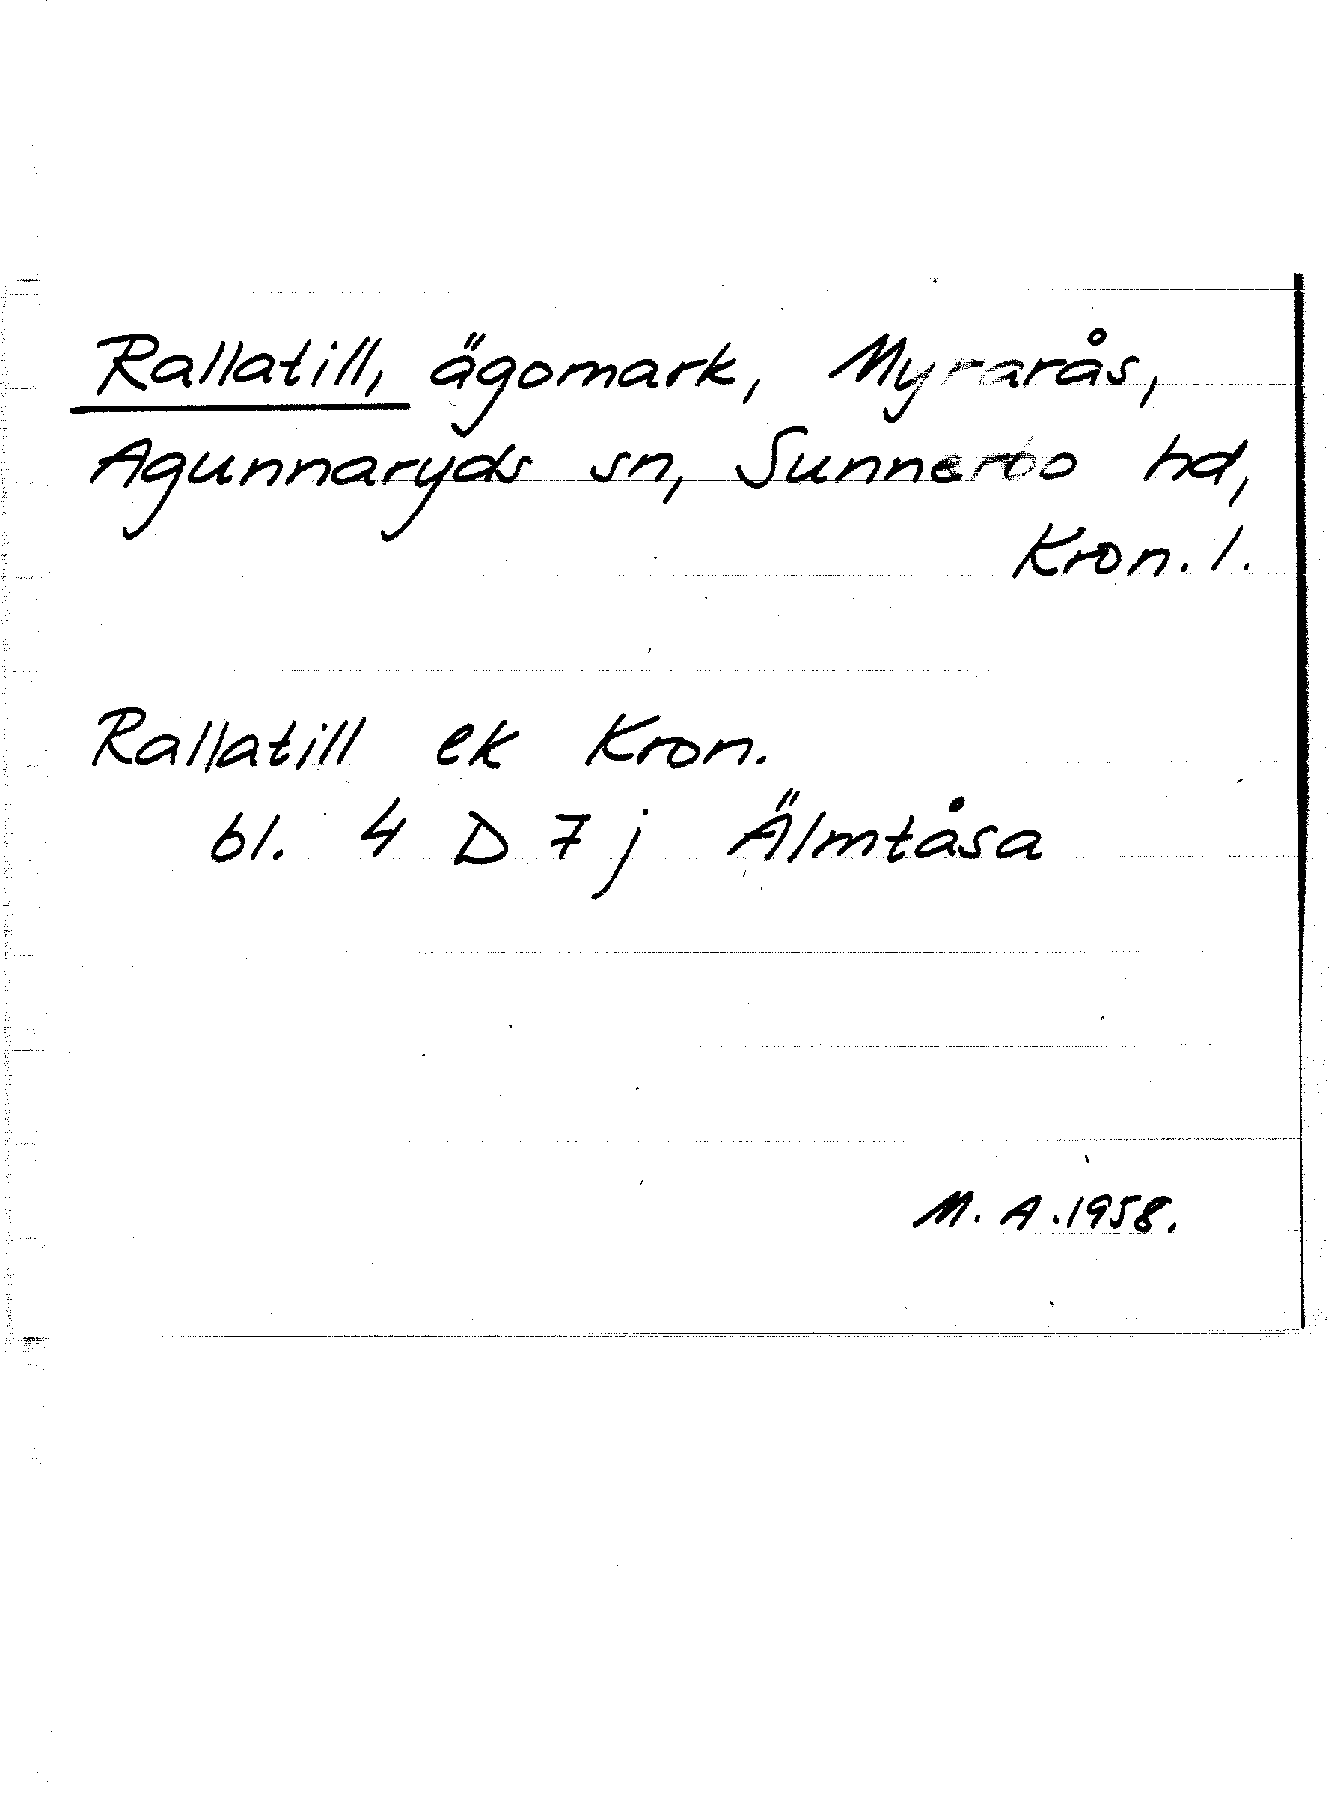 Rallatill, ägomark, Myrarås,
Agunnaryds sn, Sunnerbo hd,
Kron. l.
Rallatill ek Kron.
bl. 4 D 7j Älmtåsa
M. A. 1958.